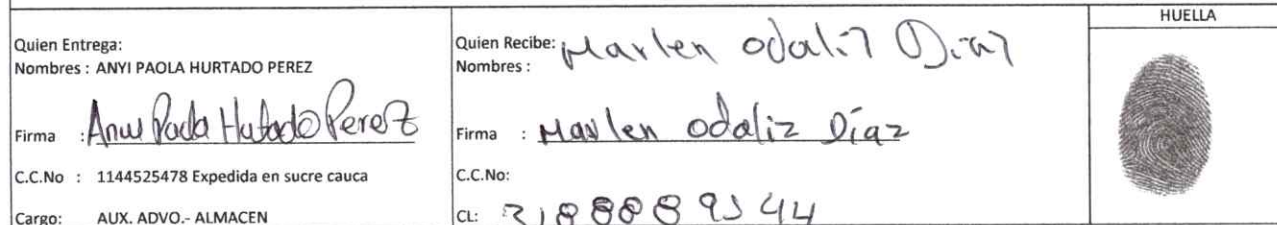 HUELLA
Quien Entrega:
Nombres : ANYI PAOLA HURTADO PEREZ
Firma : Anyi Paola Hurtado Perez
C.C.No : 1144525478 Expedida en sucre cauca
Cargo: AUX. ADVO.- ALMACEN
Quien Recibe: Marlen odaliz Díaz
Nombres :
Firma : Marlen odaliz Díaz
C.C.No:
CL: